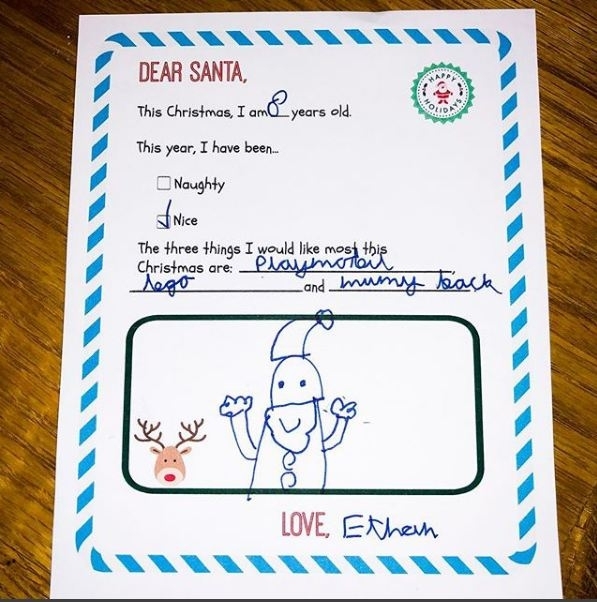 DEAR SANTA,
HAPPY HOLIDAYS
This Christmas, I am 8 years old.
This year, I have been...
Naughty
Nice
The three things I would like most this
Christmas are: Playmobil,
lego and mumy back
LOVE, Ethan